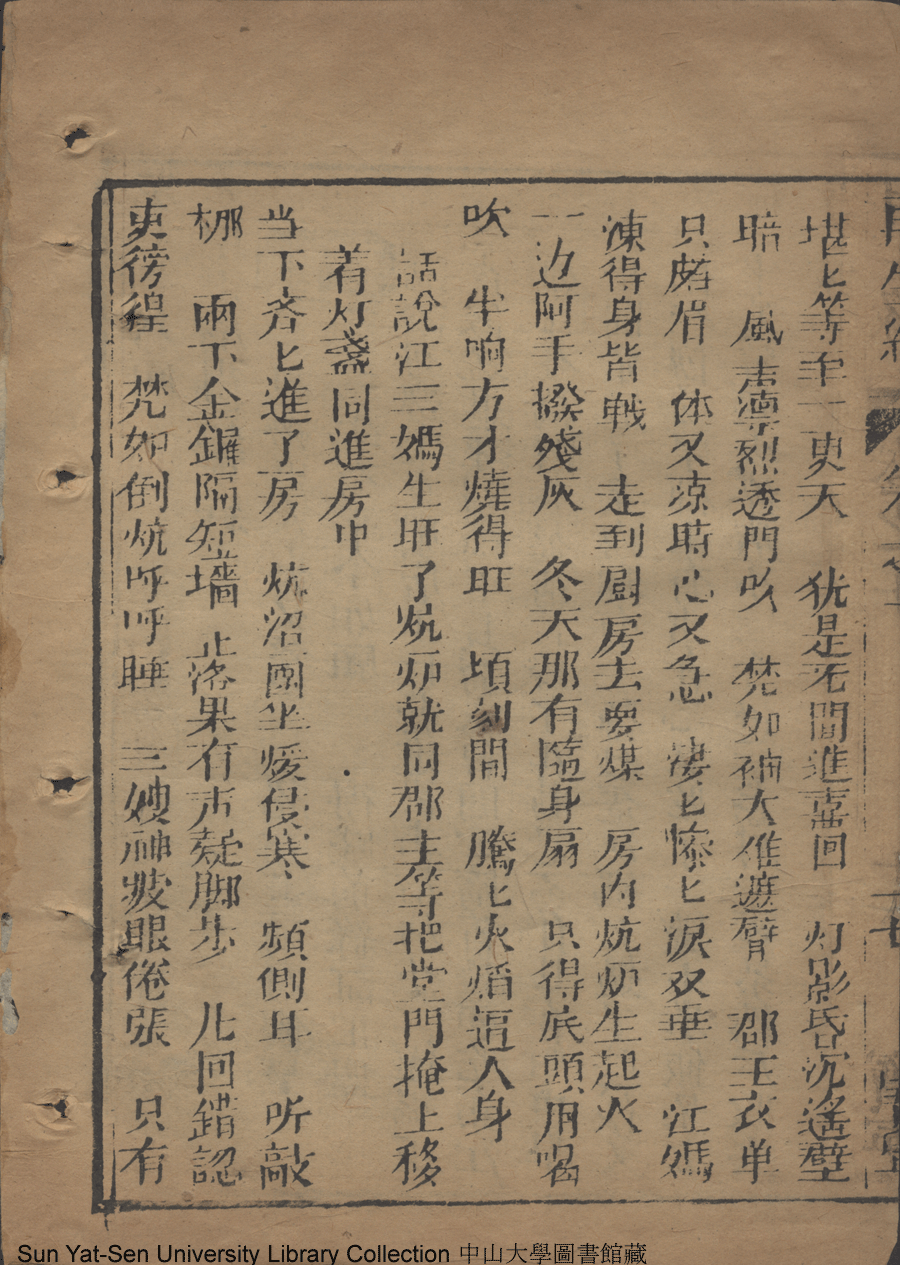 堪匕等至一更天　犹是无間進喜回　灯影昏沉遙壁
暗　風声凛烈透門吹　梵如袖大难遮臂　郡王衣单
只皮眉　体又凉時心又急　凄匕惨匕淚双垂　江媽
凍得身皆戰　走到厨房去要煤　房内炕炉生起火
一边阿手撥殘灰　冬天那有隨身扇　只得底頭用喝
吹　半响方才燒得旺　頃刻間　騰匕火焰逼人身
話說江三媽生旺了炕炉就同郡主等把堂門掩上移
着灯盞同進房中
当下斉匕進了房　炕沿圍坐煖侵寒　頻側耳　听敲
梆　兩下金鑼隔短墻　止落果有声疑脚步　几回錯認
更徬徨　梵如倒炕呼呼睡　三嫂神疲眼倦張　只有
Sun Yat-Sen University Library Collection 中山大學圖書館藏